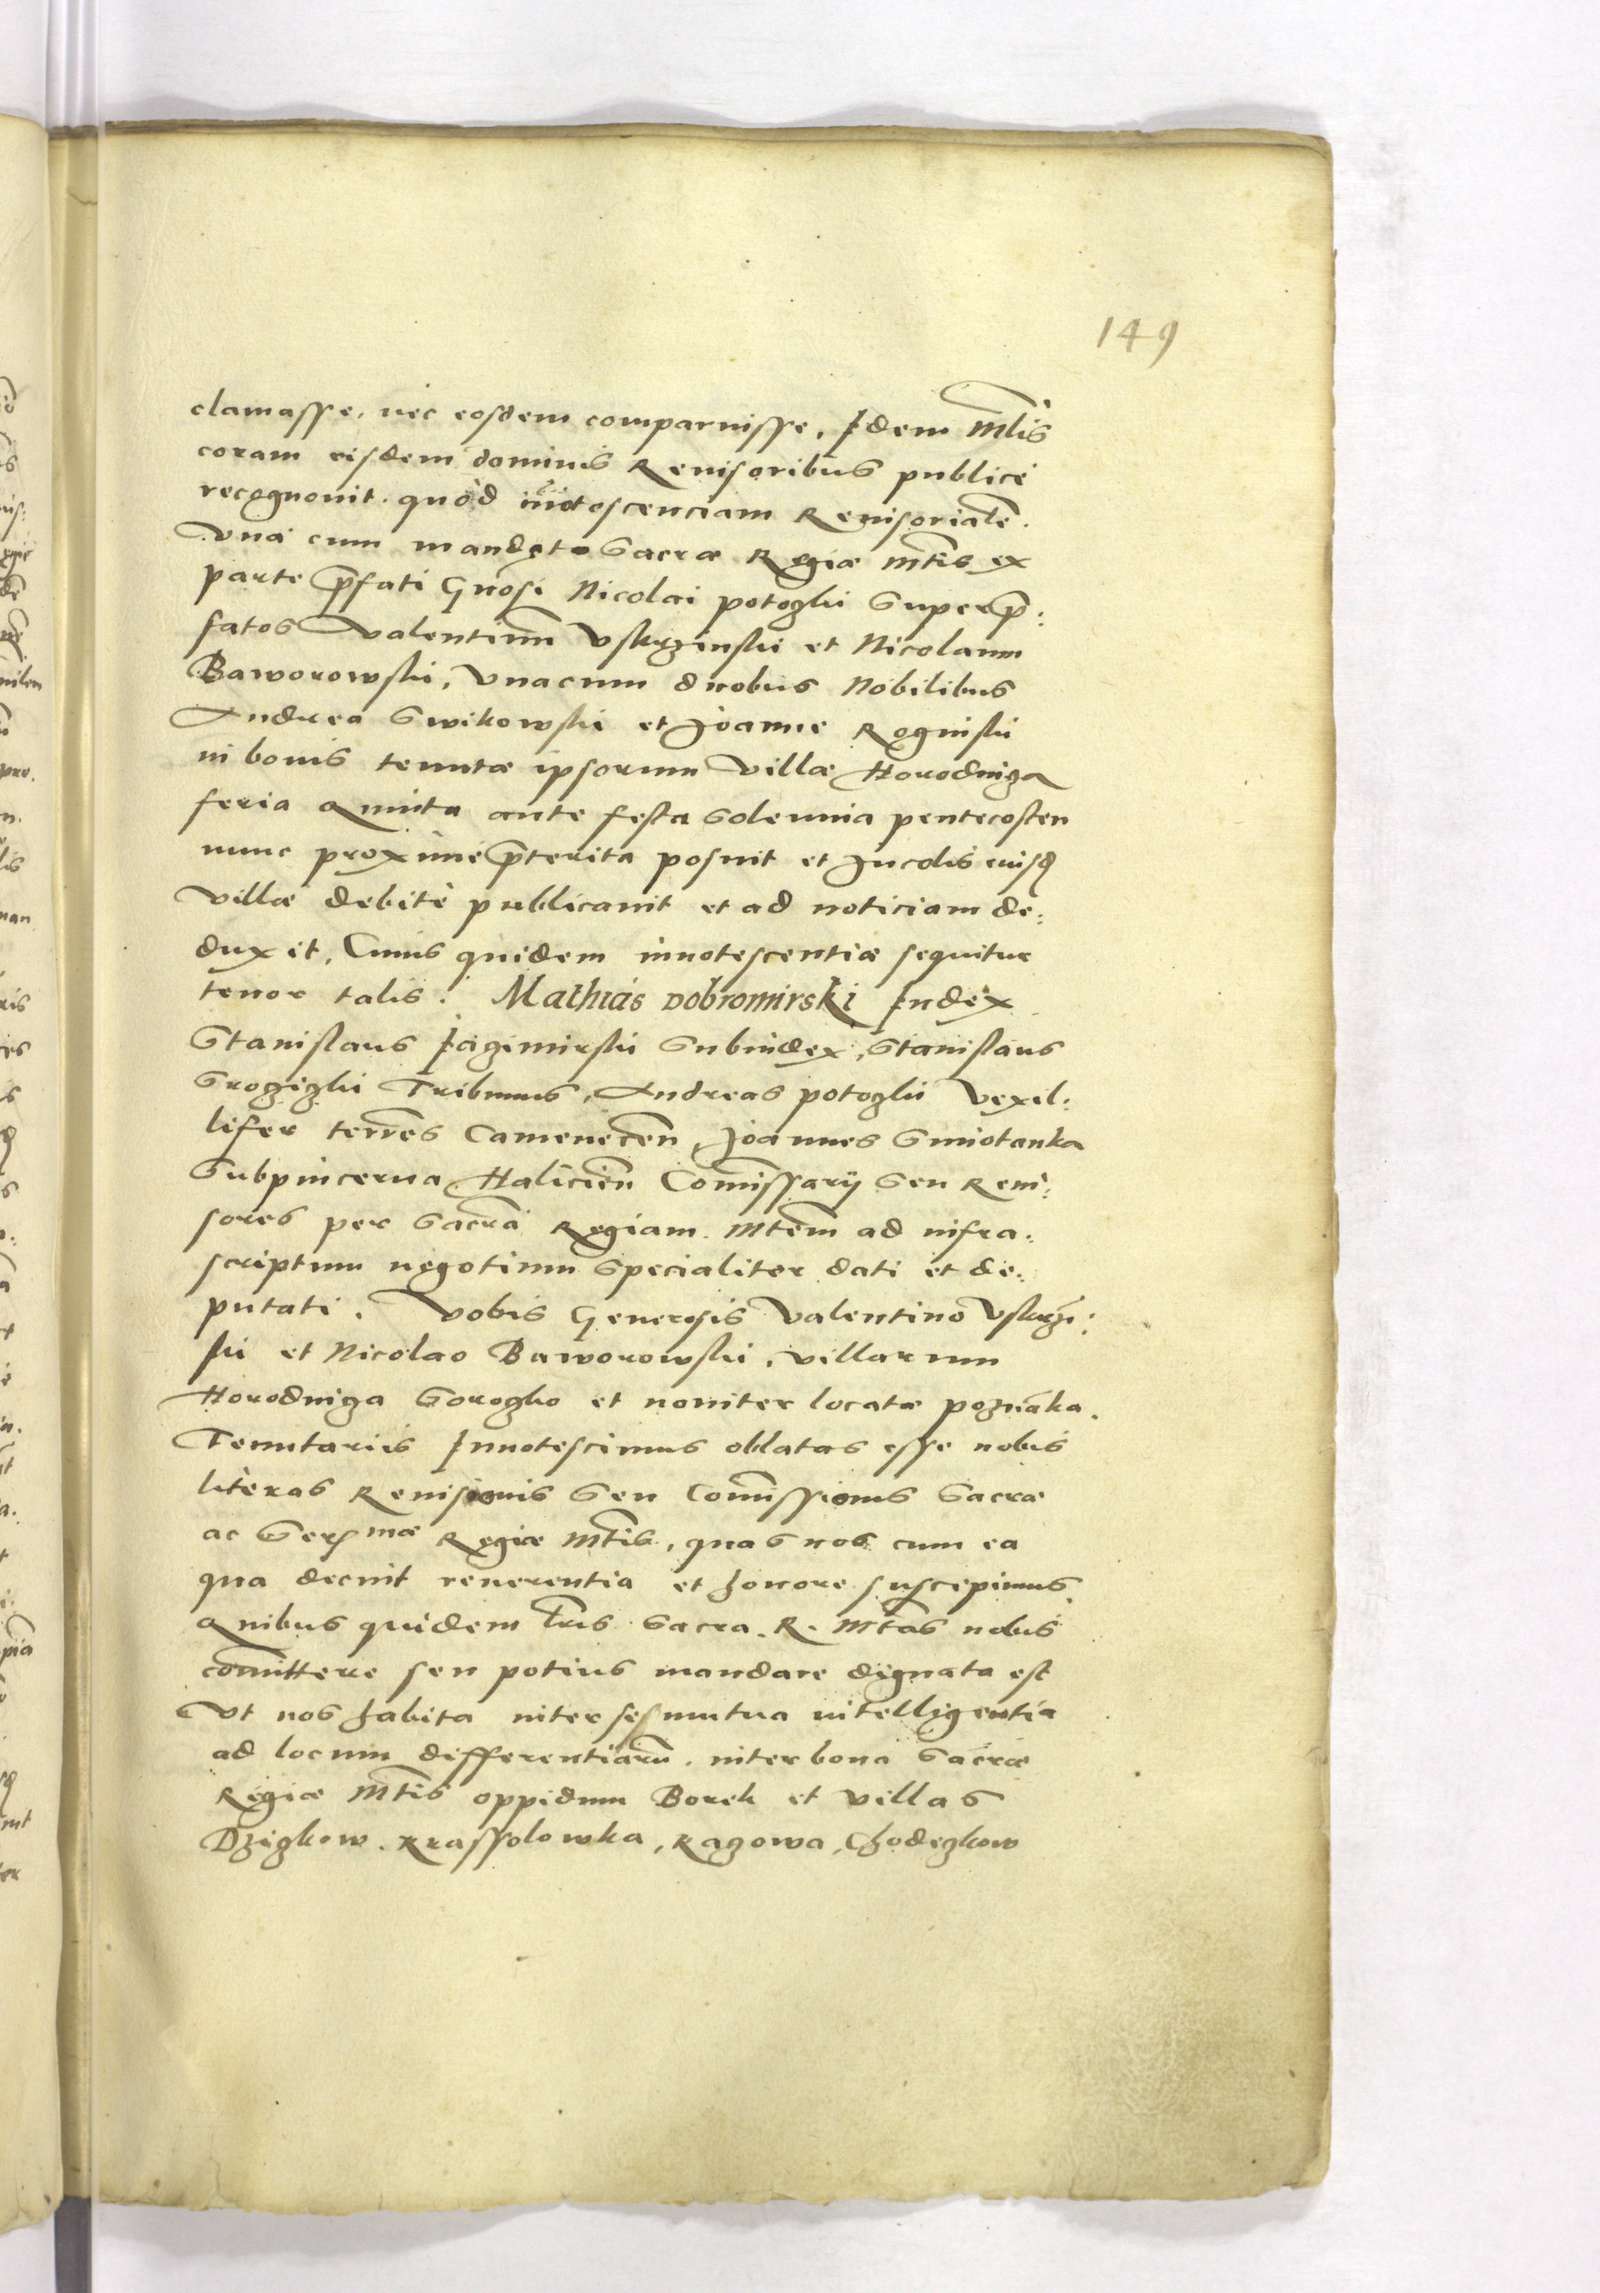 149
clamasse, nec eosdem comparuisse, Idem Mtlis
coram eisdem dominis Reuisoribus publice
recognouit. quòd inotoscenciam Reuisorialē.
Vna cum mandato Sacræ Regiæ Mtis ex
parte p̄fati Gnosi Nicolai potoczki Super p̄:
fatos Valentinū Vskrzinski et Nicolaum
Baworowski, Vnacum duobus Nobilibus
Andrea Swikowski et Joanne Roginski
in bonis tenutæ ipsorum Villæ Horodnicza
feria Quinta ante festa Solennia pentecosten
nunc proximè p̄terita posuit et Incolis eiusd
Villæ debitè publicauit et ad noticiam de:
duxit, Cuius quidem innotescentiæ sequitur
tenor talis. Mathias Dobromirski Iudex
Stanislaus Iaczimirski Subiudex, Stanislaus
Tribunus, Andreas potoczki Vexil:
lifer terrēs Camenecen̄, Joannes Smiotanka
Subpincerna Halicien̄ Com̄issarij Seu Reui:
sores per Sacrā Regiam Mtem ad infra:
scriptum negotium Specialiter dati et de:
putati. Vobis Generosis Valentino Vskrzi:
ski et Nicolao Baworowski, villarum
Horodnicza Soroczko et nouiter locatæ poznāka.
Tenutariis Innotescimus oblatas esse nobis
literas Reuisionis Seu Com̄issionis Sacræ
ac Sermæ Regiæ Mtis, quas nos cum ea
qua decuit reuerentia et honore suscepimus.
Quibus quidem lr̄is Sacra. R. Mtas nobis
com̄ittere seu potius mandare dignata est
Vt nos habita inter se mutua intelligentia
ad locum differentiarū. inter bona Sacræ
Regiæ Mtis oppidum Borek et Villas
Dziczkow. Krassolowka, Raczowa, Chodeczkow